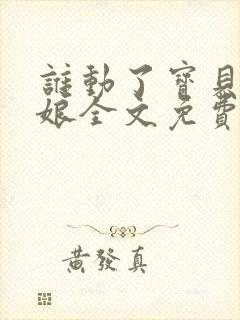 誰動了寶貝
娘全文免費
黃發真